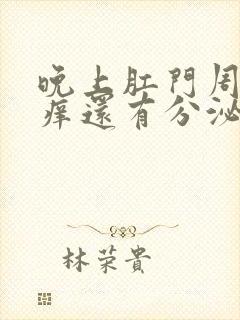 晚上肛門周
痒還有分泌
林荣貴